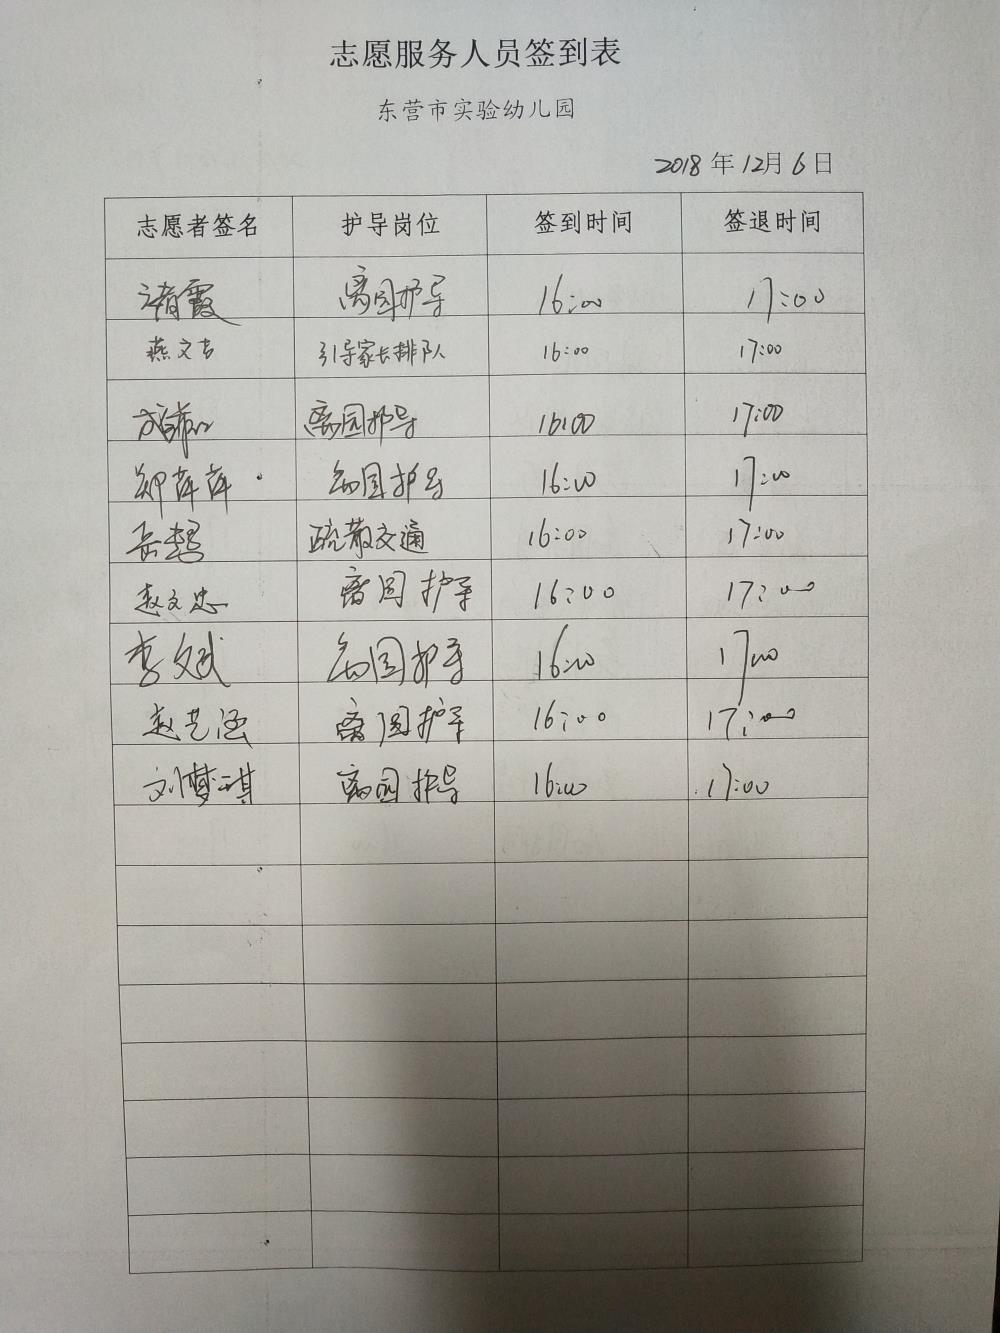 志愿服务人员签到表
东营市实验幼儿园
2018年12月6日
志愿者签名 护导岗位 签到时间 签退时间
褚霞 离园护导 16:00 17:00
燕文吉 引导家长排队 16:00 17:00
离园护导 16:00 17:00
郑萍萍 离园护导 16:00 17:00
岳慧 疏散交通 16:00 17:00
赵文忠 离园护导 16:00 17:00
李文斌 离园护导 16:00 17:00
赵艺涵 离园护导 16:00 17:00
刘梦琪 离园护导 16:00 17:00